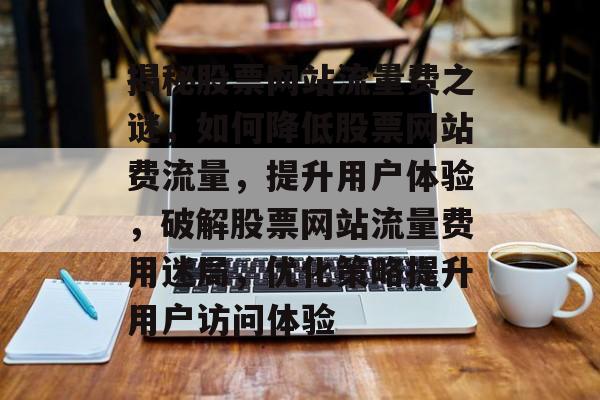 揭秘股票网站流量费之
谜，如何降低股票网站
费流量，提升用户体验
，破解股票网站流量费
用迷局，优化策略提升
用户访问体验